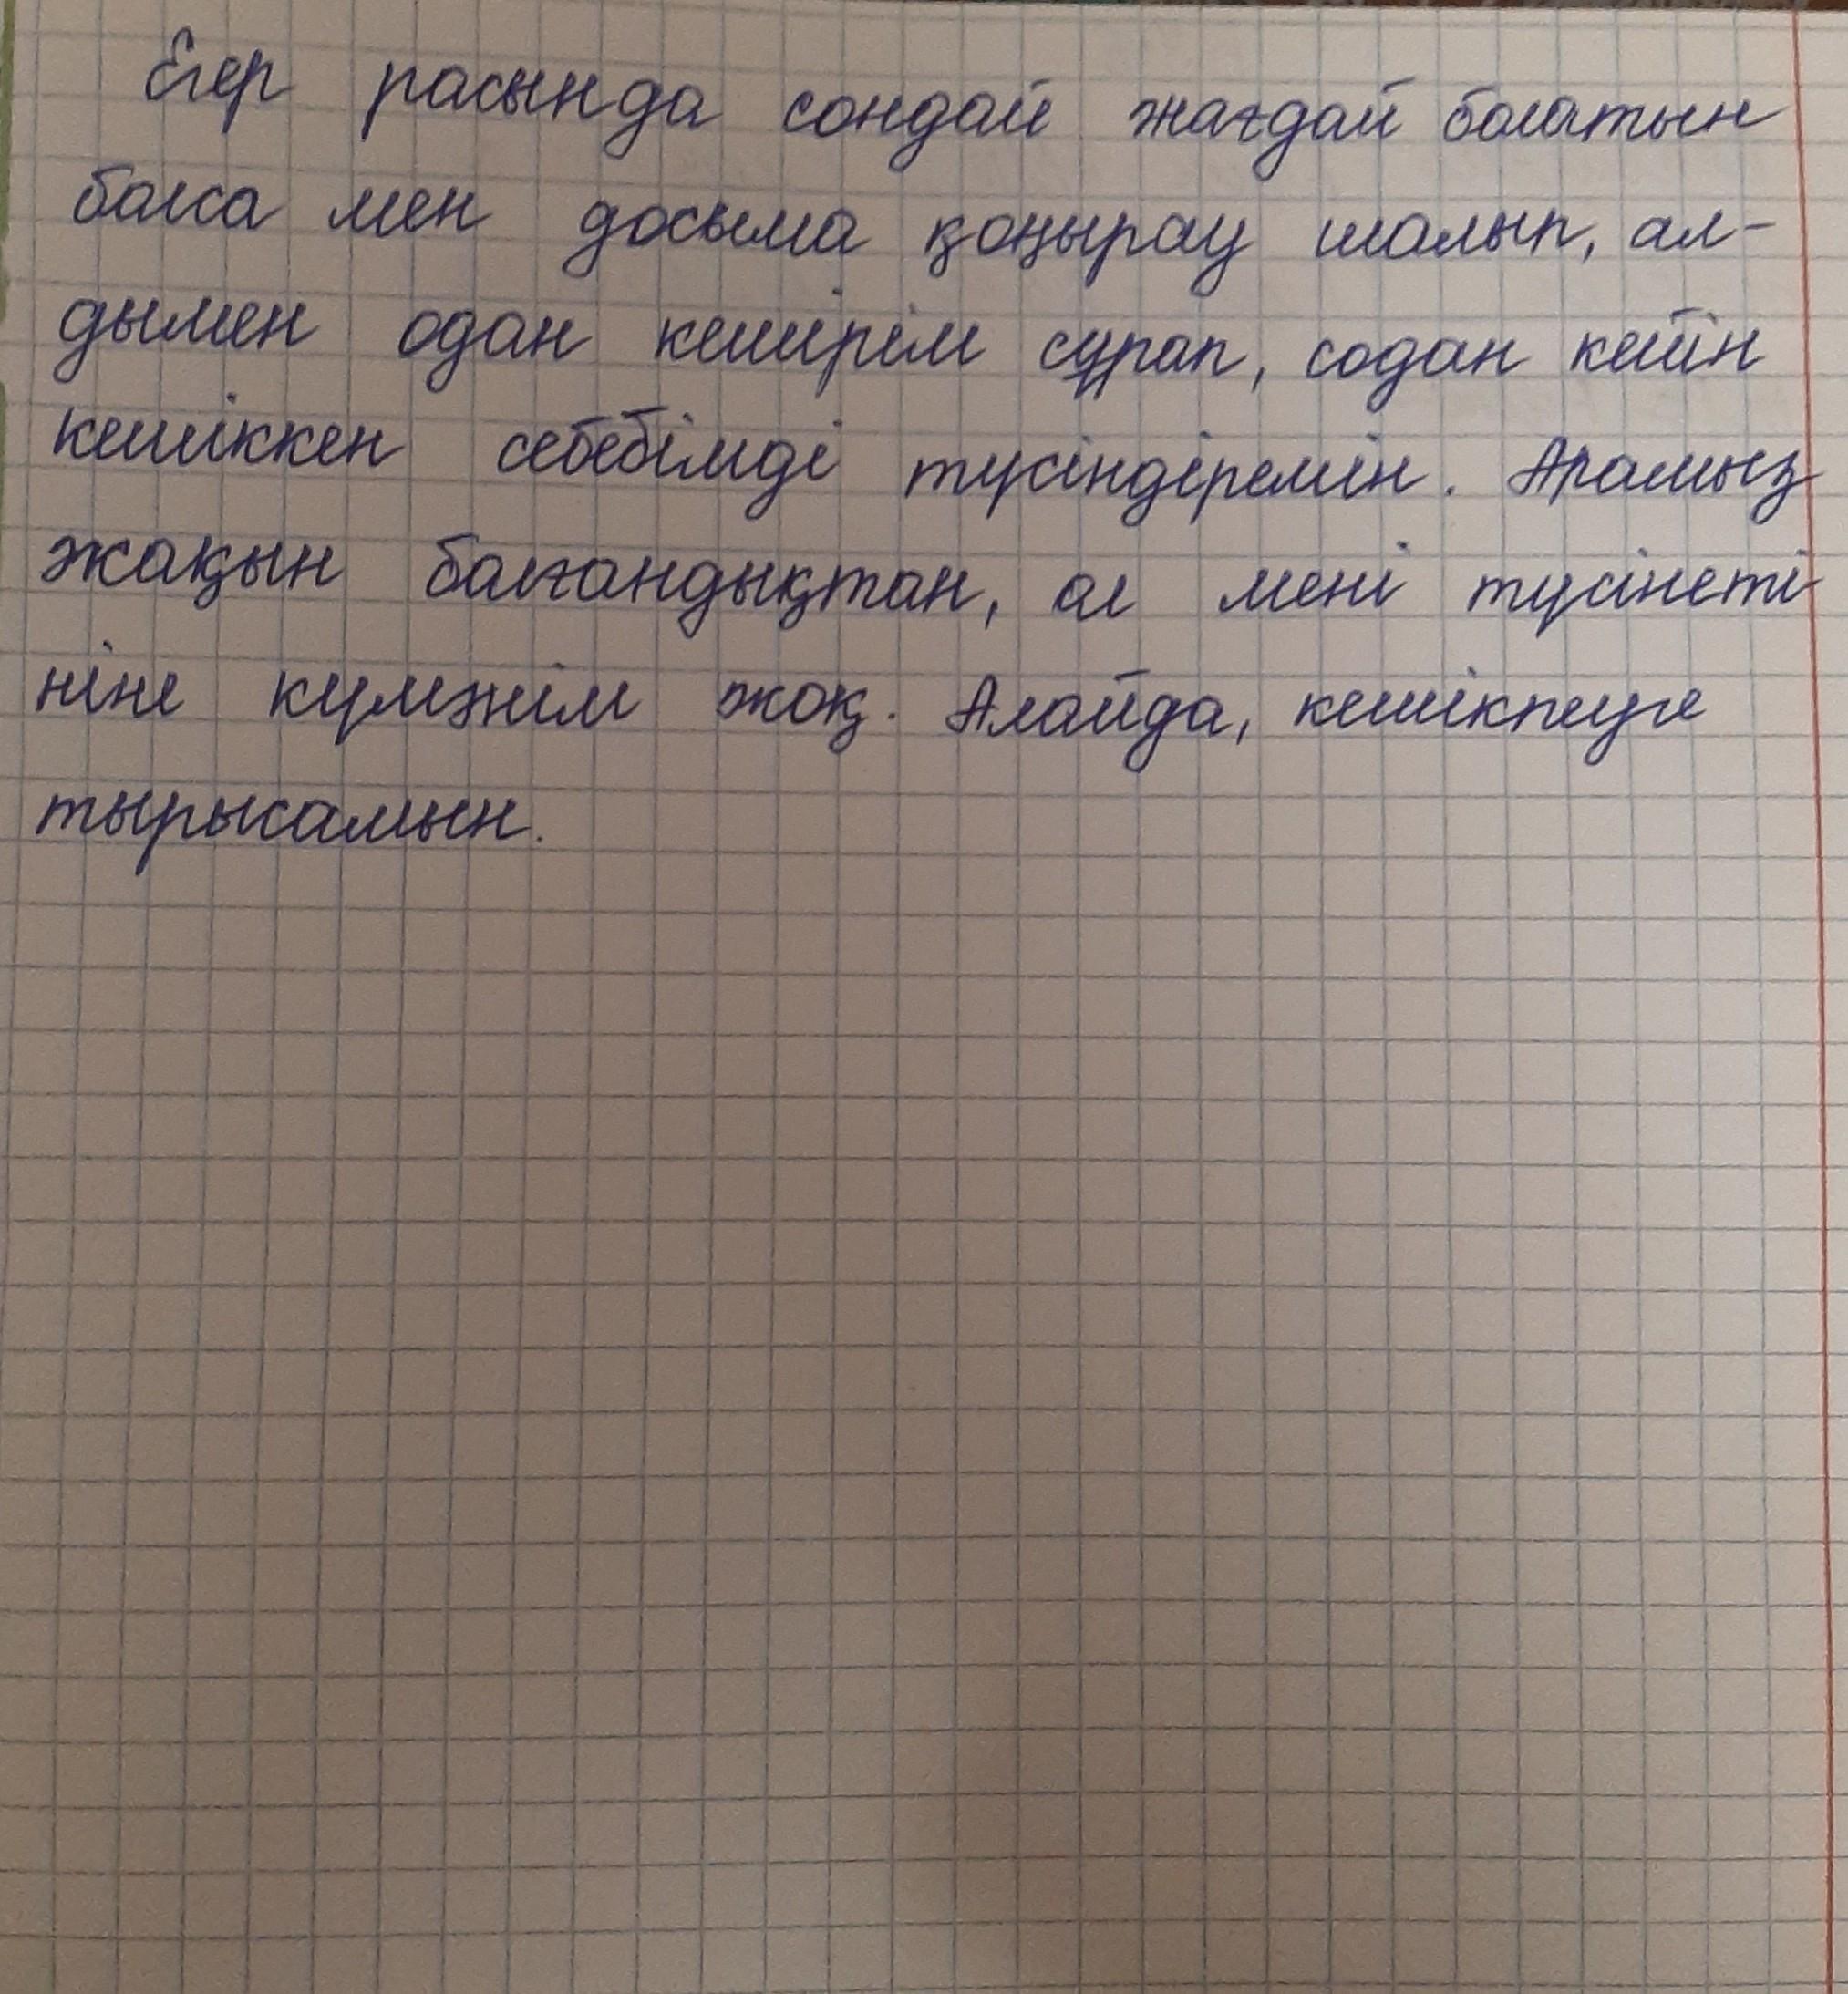 Егер расында сондай жағдай болатын
болса мен досыма қоңырау шалып, ал-
дымен одан кешірім сұрап, содан кейін
кешіккен себебімді түсіндіремін. Арамыз
жақын болғандықтан, ол мені түсінеті
ніне күмәнім жоқ. Алайда, кешікпеуге
тырысамын.